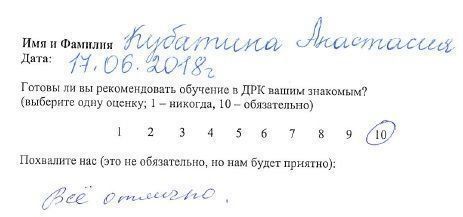 Имя и Фамилия Кубатина Анастасия
Дата: 17.06.2018г
Готовы ли вы рекомендовать обучение в ДРК вашим знакомым?
(выберите одну оценку; 1 – никогда, 10 – обязательно)
1 2 3 4 5 6 7 8 9 10
Похвалите нас (это не обязательно, но нам будет приятно):
Всё отлично.